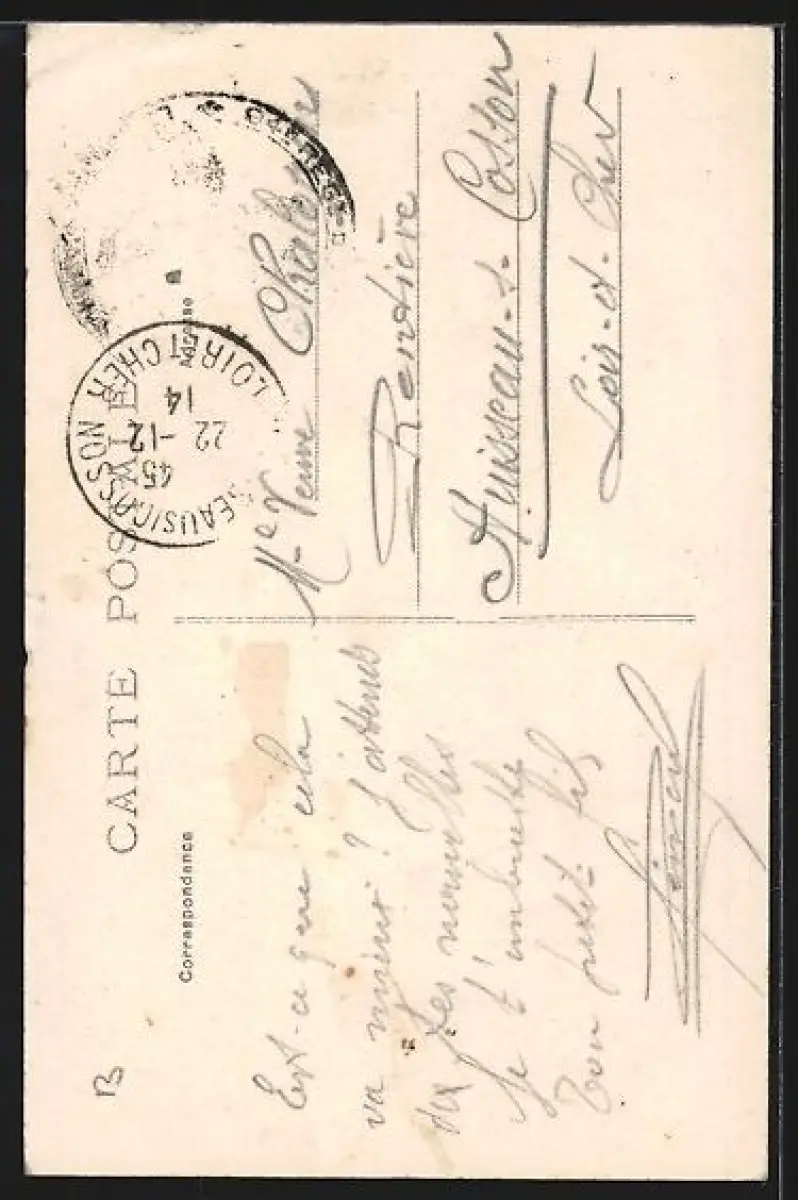 CARTE POSTALE
Correspondance
Adresse
B
Est-ce que cela
va mieux ? J'attends
des nouvelles
Je t'embrasse
Ton petit fils
Mᵉ Veuve
Rentière
Huisseau-s-Cosson
Loir-et-Cher
SEAUSICOSSON
LOIR ET CHER
45
22-12
14